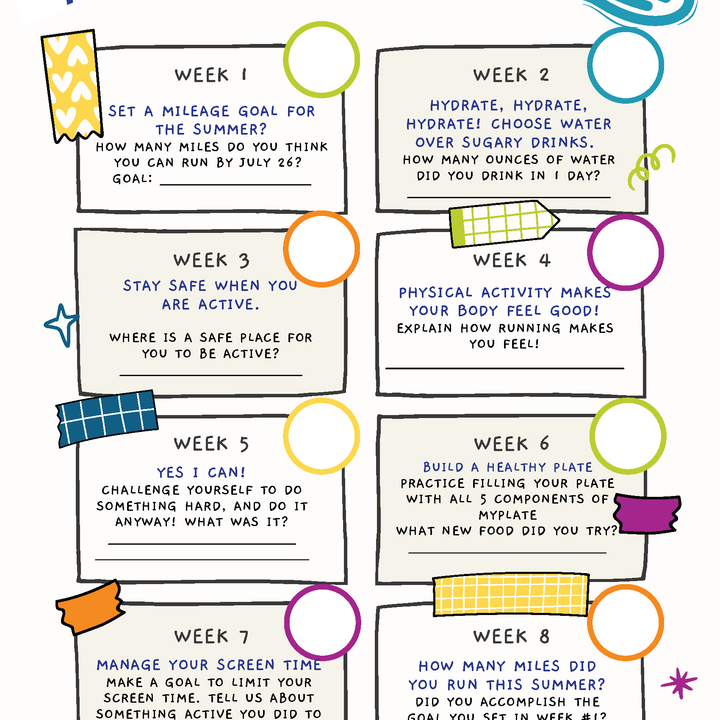 WEEK 1
SET A MILEAGE GOAL FOR
THE SUMMER?
HOW MANY MILES DO YOU THINK
YOU CAN RUN BY JULY 26?
GOAL:
WEEK 2
HYDRATE, HYDRATE,
HYDRATE! CHOOSE WATER
OVER SUGARY DRINKS.
HOW MANY OUNCES OF WATER
DID YOU DRINK IN 1 DAY?
WEEK 3
STAY SAFE WHEN YOU
ARE ACTIVE.
WHERE IS A SAFE PLACE FOR
YOU TO BE ACTIVE?
WEEK 4
PHYSICAL ACTIVITY MAKES
YOUR BODY FEEL GOOD!
EXPLAIN HOW RUNNING MAKES
YOU FEEL!
WEEK 5
YES I CAN!
CHALLENGE YOURSELF TO DO
SOMETHING HARD, AND DO IT
ANYWAY! WHAT WAS IT?
WEEK 6
BUILD A HEALTHY PLATE
PRACTICE FILLING YOUR PLATE
WITH ALL 5 COMPONENTS OF
MYPLATE
WHAT NEW FOOD DID YOU TRY?
WEEK 7
MANAGE YOUR SCREEN TIME
MAKE A GOAL TO LIMIT YOUR
SCREEN TIME. TELL US ABOUT
SOMETHING ACTIVE YOU DID TO
WEEK 8
HOW MANY MILES DID
YOU RUN THIS SUMMER?
DID YOU ACCOMPLISH THE
GOAL YOU SET IN WEEK #1?